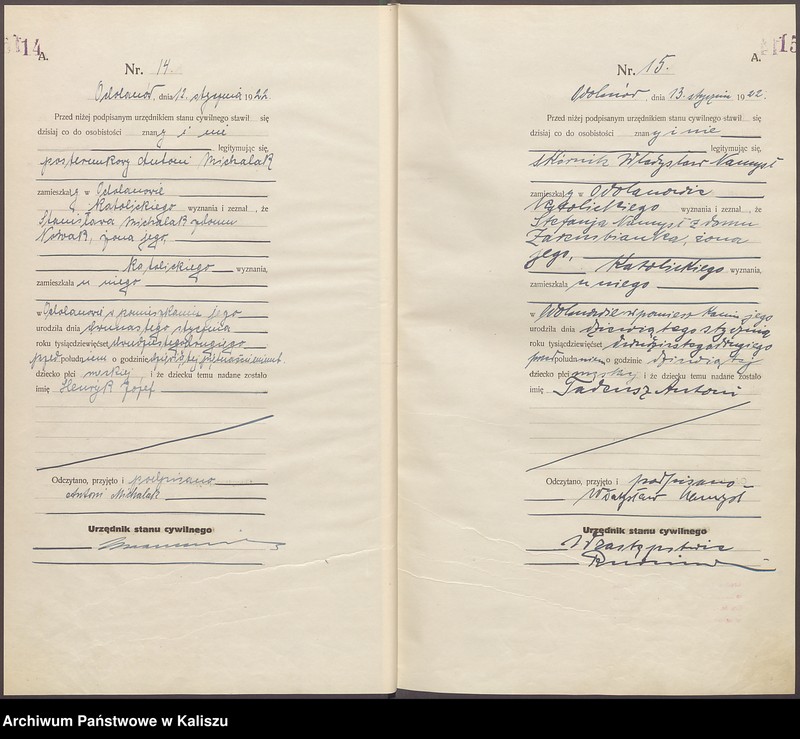 14
A.
Nr. 14.
Odolanów, dnia 12. stycznia 1922.
Przed niżej podpisanym urzędnikiem stanu cywilnego stawił się
dzisiaj co do osobistości znany i nie
legitymując się,
posterunkowy Antoni Michalak
zamieszkały w Odolanowie
katolickiego wyznania i zeznał, że
Stanisława Michalak z domu
Nowak, żona jego,
katolickiego wyznania,
zamieszkała u niego
w Odolanowie w pomieszkaniu jego
urodziła dnia dwunastego stycznia
roku tysiącdziewięćset dwudziestegodrugiego
przed południem o godzinie
dziecko płci męskiej i że dziecku temu nadane zostało
imię Henryk Józef
Odczytano, przyjęto i podpisano
Antoni Michalak
Urzędnik stanu cywilnego
15
A.
Nr. 15.
Odolanów, dnia 13. stycznia 1922.
Przed niżej podpisanym urzędnikiem stanu cywilnego stawił się
dzisiaj co do osobistości znany i nie
legitymując się,
skórnik Władysław Namysł
zamieszkały w Odolanowie
katolickiego wyznania i zeznał, że
Stefanja Namysł z domu
żona
jego, katolickiego wyznania,
zamieszkała u niego
w Odolanowie w pomieszkaniu jego
urodziła dnia dziewiątego stycznia
roku tysiącdziewięćset dwudziestegodrugiego
przed południem o godzinie dziewiątej
dziecko płci męskiej i że dziecku temu nadane zostało
imię Tadeusz Antoni
Odczytano, przyjęto i podpisano
Władysław Namysł
Urzędnik stanu cywilnego
W zastępstwie
Archiwum Państwowe w Kaliszu